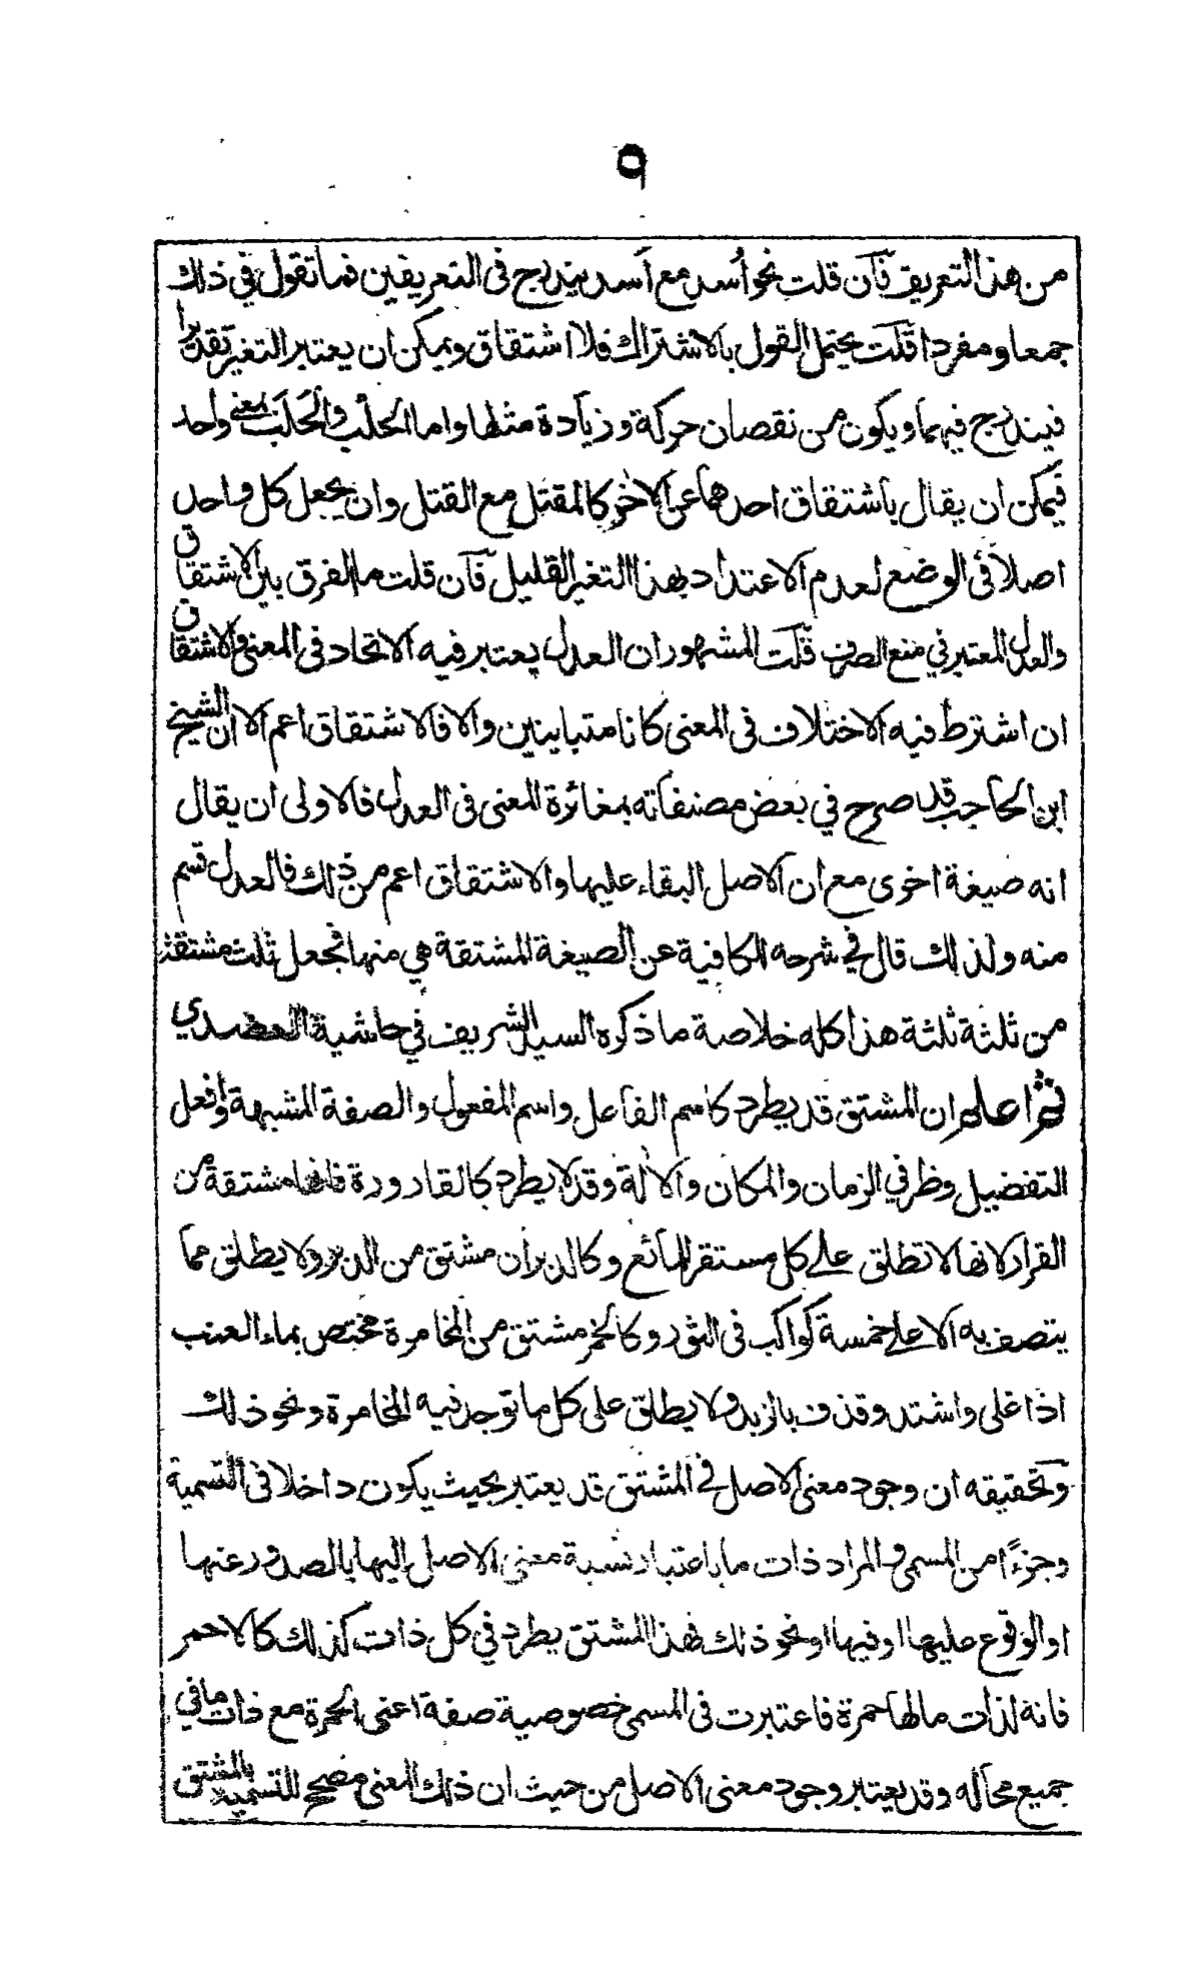 ٩
من هذا التعريف فآن قلت نحو أُسد مع أَسد يندرج فى التعريفين فما تقول في ذلك
جمعا ومفردا قلت يحتمل القول بالاشتراك فلا اشتقاق ويمكن ان يعتبر التغير تقديرا
فيندرج فيهما ويكون من نقصان حركة وزيادة مثلها واما الحلْب والحَلَب بمعنى واحد
فيمكن ان يقال باشتقاق احدهما عن الاخر كالمقتل مع القتل وان يجعل كل واحد
اصلا فى الوضع لعدم الاعتداد بهذا التغير القليل فآن قلت ما الفرق بين الاشتقاق
والعدل المعتبر في منع الصرف قلت المشهور ان العدل يعتبر فيه الاتحاد فى المعنى والاشتقاق
ان اشترط فيه الاختلاف فى المعنى كانا متباينين والا فالاشتقاق اعم الا ان الشيخ
ابن الحاجب قد صرح في بعض مصنفاته بمغائرة المعنى فى العدل فالاولى ان يقال
انه صيغة اخرى مع ان الاصل البقاء عليها والاشتقاق اعم من ذلك فالعدل قسم
منه ولذلك قال في شرحه الكافية عن الصيغة المشتقة هي منها فجعل ثلث مشتقة
من ثلثة ثلثة هذا كله خلاصة ما ذكره السيد الشريف في حاشية العضدي
ثم اعلم ان المشتق قد يطرد كاسم الفاعل واسم المفعول والصفة المشبهة وافعل
التفضيل وظرفي الزمان والمكان والالة وقد لا يطرد كالقارورة فانها مشتقة من
القرار لانها لا تطلق على كل مستقر المائع وكالدبران مشتق من الدبر ولا يطلق مما
يتصف به الا على خمسة كواكب فى الثور وكالخمر مشتق من المخامرة مختص بماء العنب
اذا غلى واشتد وقذف بالزبد ولا يطلق على كل ما توجد فيه المخامرة ونحو ذلك
وتحقيقه ان وجود معنى الاصل في المشتق قد يعتبر بحيث يكون داخلا فى التسمية
وجزءًا من المسمى والمراد ذات ما باعتبار نسبة معنى الاصل اليها بالصدور عنها
او الوقوع عليها او فيها او نحو ذلك فهذا المشتق يطرد في كل ذات كذلك كالاحمر
فانه لذات ما لها حمرة فاعتبرت فى المسمى خصوصية صفة اعنى الحمرة مع ذات ما في
جميع محاله وقد يعتبر وجود معنى الاصل من حيث ان ذلك المعنى مصحح للتسمية بالمشتق